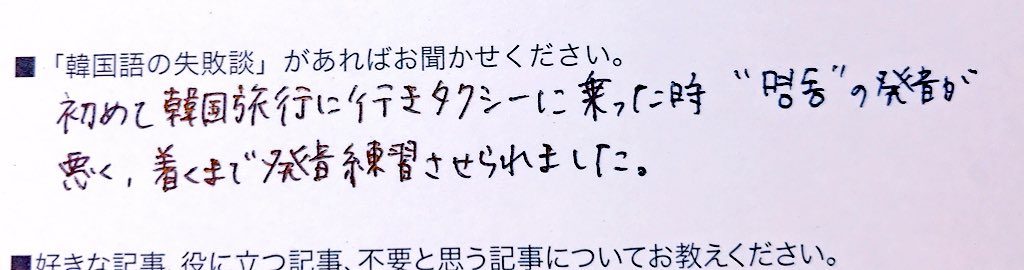 ■「韓国語の失敗談」があればお聞かせください。
初めて韓国旅行に行きタクシーに乗った時 "명동"の発音が
悪く, 着くまで発音練習させられました。
■好きな記事、役に立つ記事、不要と思う記事についてお教えください。